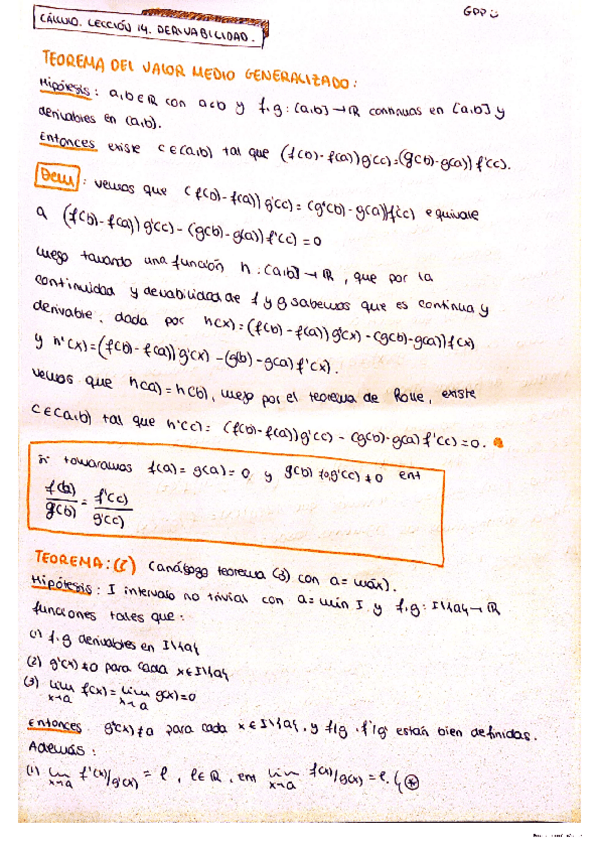 CÁLCULO. LECCIÓN 14. DERIVABILIDAD.
TEOREMA DEL VALOR MEDIO GENERALIZADO:
Hipótesis: a,b∈ℝ con a<b y f,g: [a,b]→ℝ continuas en [a,b] y
derivables en (a,b).
Entonces existe c∈(a,b) tal que (f(b)-f(a))g'(c)=(g(b)-g(a))f'(c).
Dem: vemos que (f(b)-f(a))g'(c)=(g(b)-g(a))f'(c) equivale
a (f(b)-f(a))g'(c)-(g(b)-g(a))f'(c)=0
luego tomando una función h:[a,b]→ℝ, que por la
continuidad y derivabilidad de f y g sabemos que es continua y
derivable. dada por h(x)=(f(b)-f(a))g(x)-(g(b)-g(a))f(x)
y h'(x)=(f(b)-f(a))g'(x)-(g(b)-g(a)f'(x).
vemos que h(a)=h(b), luego por el teorema de Rolle, existe
c∈(a,b) tal que h'(c)=(f(b)-f(a))g'(c)-(g(b)-g(a)f'(c)=0.
Si tomaramos f(a)=g(a)=0 y g(b)≠0,g'(c)≠0 ent
f(b)/g(b) = f'(c)/g'(c)
TEOREMA: (análogo teorema (3) con a=máx).
Hipótesis: I intervalo no trivial con a=mín I y f,g: I\{a}→ℝ
funciones tales que:
(1) f,g derivables en I\{a}
(2) g'(x)≠0 para cada x∈I\{a}
(3) lim x→a f(x)=lim x→a g(x)=0
Entonces g(x)≠0 para cada x∈I\{a}, y f/g, f'/g' están bien definidas.
Además:
(1) lim x→a f'(x)/g'(x) = l, l∈ℝ, ent lim x→a f(x)/g(x)=l.